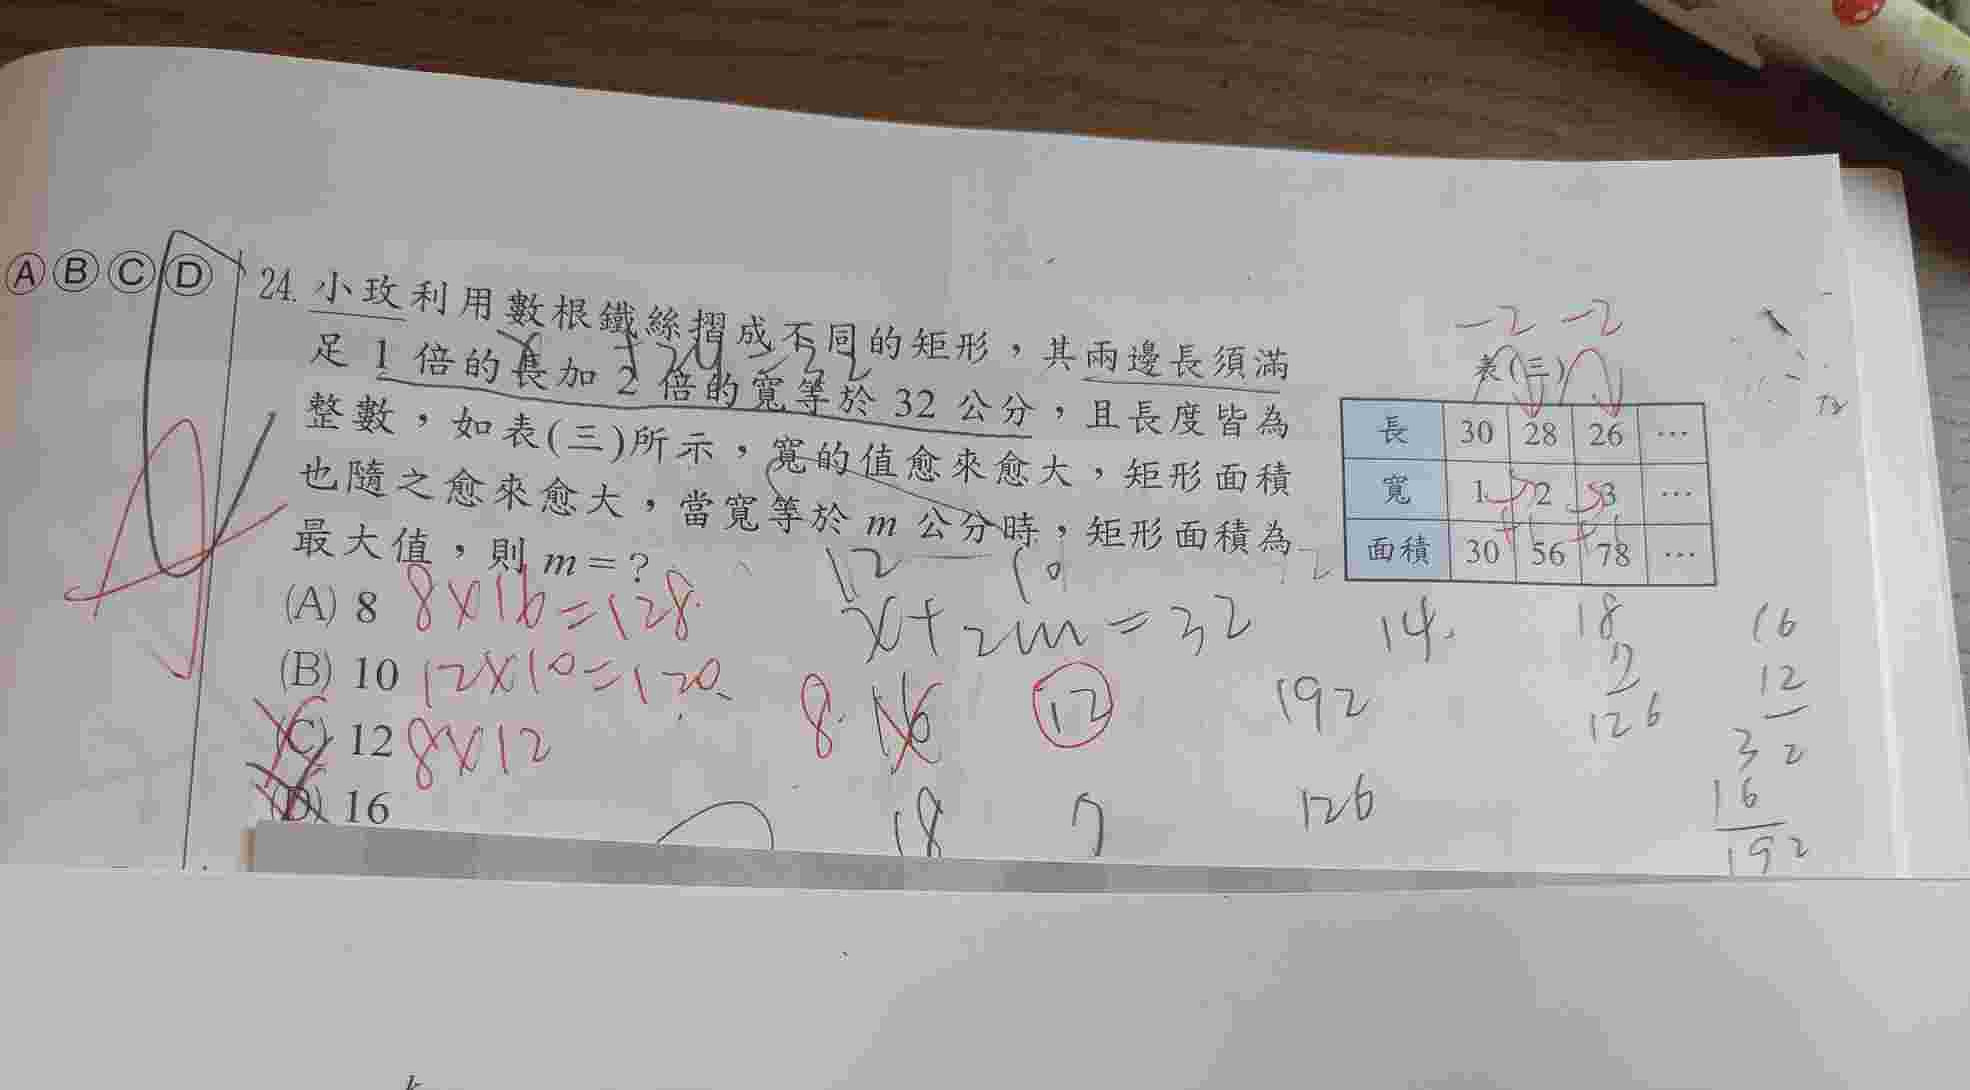 Ⓐ Ⓑ Ⓒ Ⓓ
24. 小玫利用數根鐵絲摺成不同的矩形，其兩邊長須滿
足 1 倍的長加 2 倍的寬等於 32 公分，且長度皆為
整數，如表(三)所示，寬的值愈來愈大，矩形面積
也隨之愈來愈大，當寬等於 m 公分時，矩形面積為
最大值，則 m=？
(A) 8 8×16=128.
(B) 10 12×10=120.
(C) 12 8×12
(D) 16
-2 -2
表(三)
長 30 28 26 …
寬 1 2 3 …
面積 30 56 78 …
12 10
x+2m=32
14.
8. 16 12
192
18 7 126
18
7
126
16
12
32
16
192